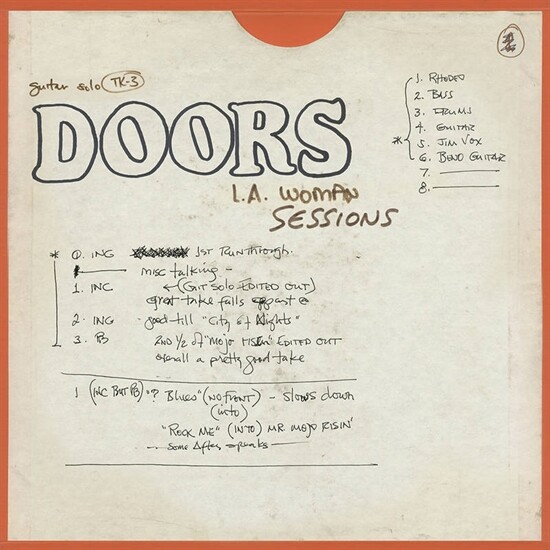 guitar solo TK-3
DOORS
L.A. WOMAN
SESSIONS
1. RHODES
2. BASS
3. DRUMS
4. GUITAR
* 5. JIM VOX
6. BEND GUITAR
7.
8.
* 0. ING 1ST RunThrough.
misc talking -
1. INC ←(GIT SOLO EDITED OUT)
great take falls appart @
2. ING good till "City of Nights"
3. PB 2ND 1/2 of "MOJO RISIN" EDITED OUT
overall a pretty good take
1 (INC BUT PB) "? Blues" (NO FRONT) - slows down
(into)
"ROCK ME" (INTO) MR MOJO RISIN'
- some After